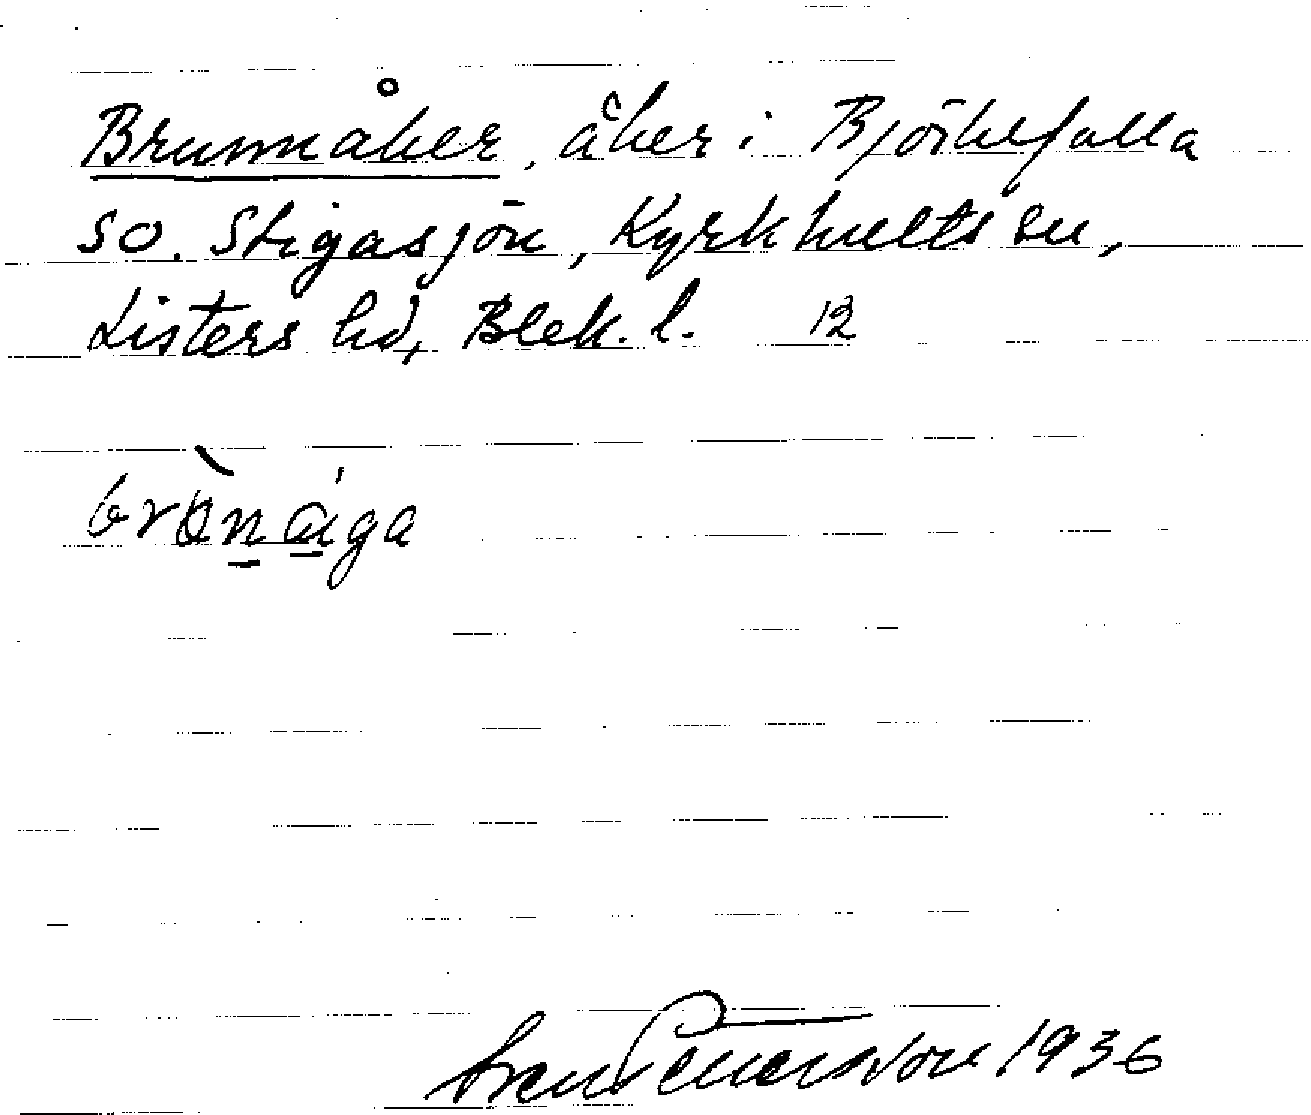 Brunnåker, åker i Björkefalla
so. Stigasjön, Kyrkhults sn,
Listers hd, Blek. l. 12
Sven 1936